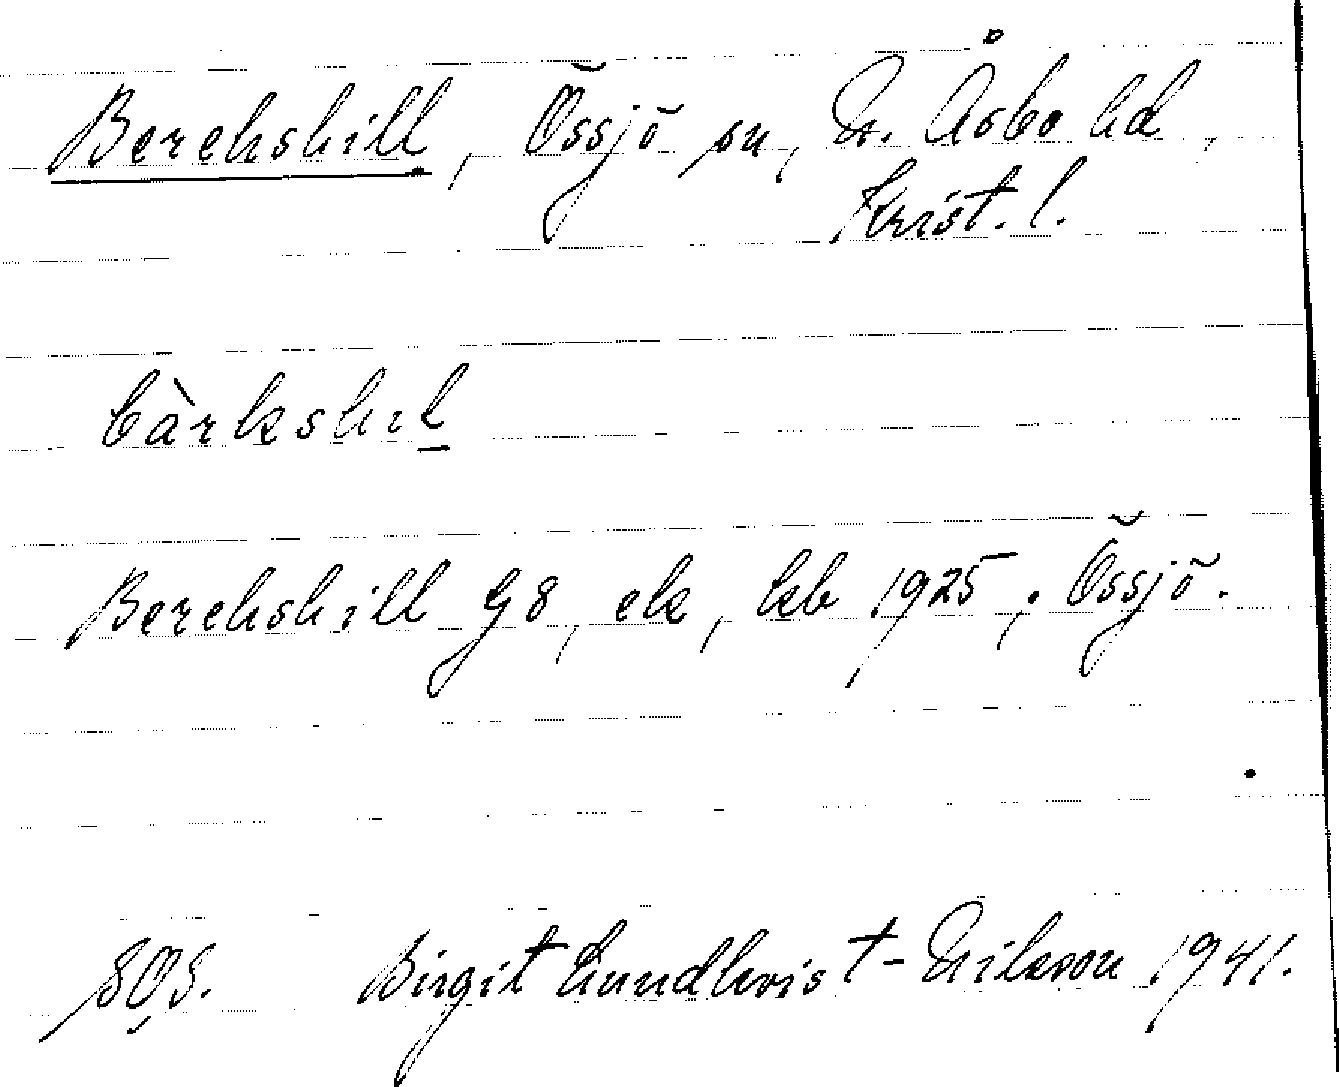 Berekshill, Össjö sn, N. Åsbo hd,
Krist. l.
bàrkshil
Berekshill G8, ek, kb 1925, Össjö.
SOS. Birgit Lundkvist-Nilsson 1941.